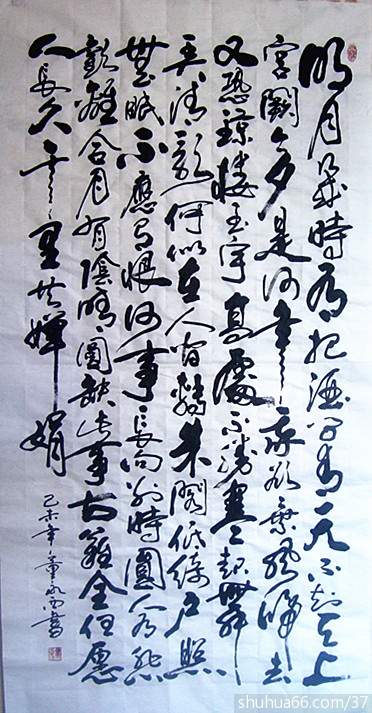 明月几時有把酒问青天不知天上
宫阙今夕是何年我欲乘風归去
又恐瓊樓玉宇高處不勝寒起舞
弄清影何似在人间轉朱閣低绮户照
無眠不應有恨何事長向别時圓人有悲
歡離合月有陰晴圓缺此事古難全但愿
人長久千里共嬋娟
己未年董書
shuhua66.com/37